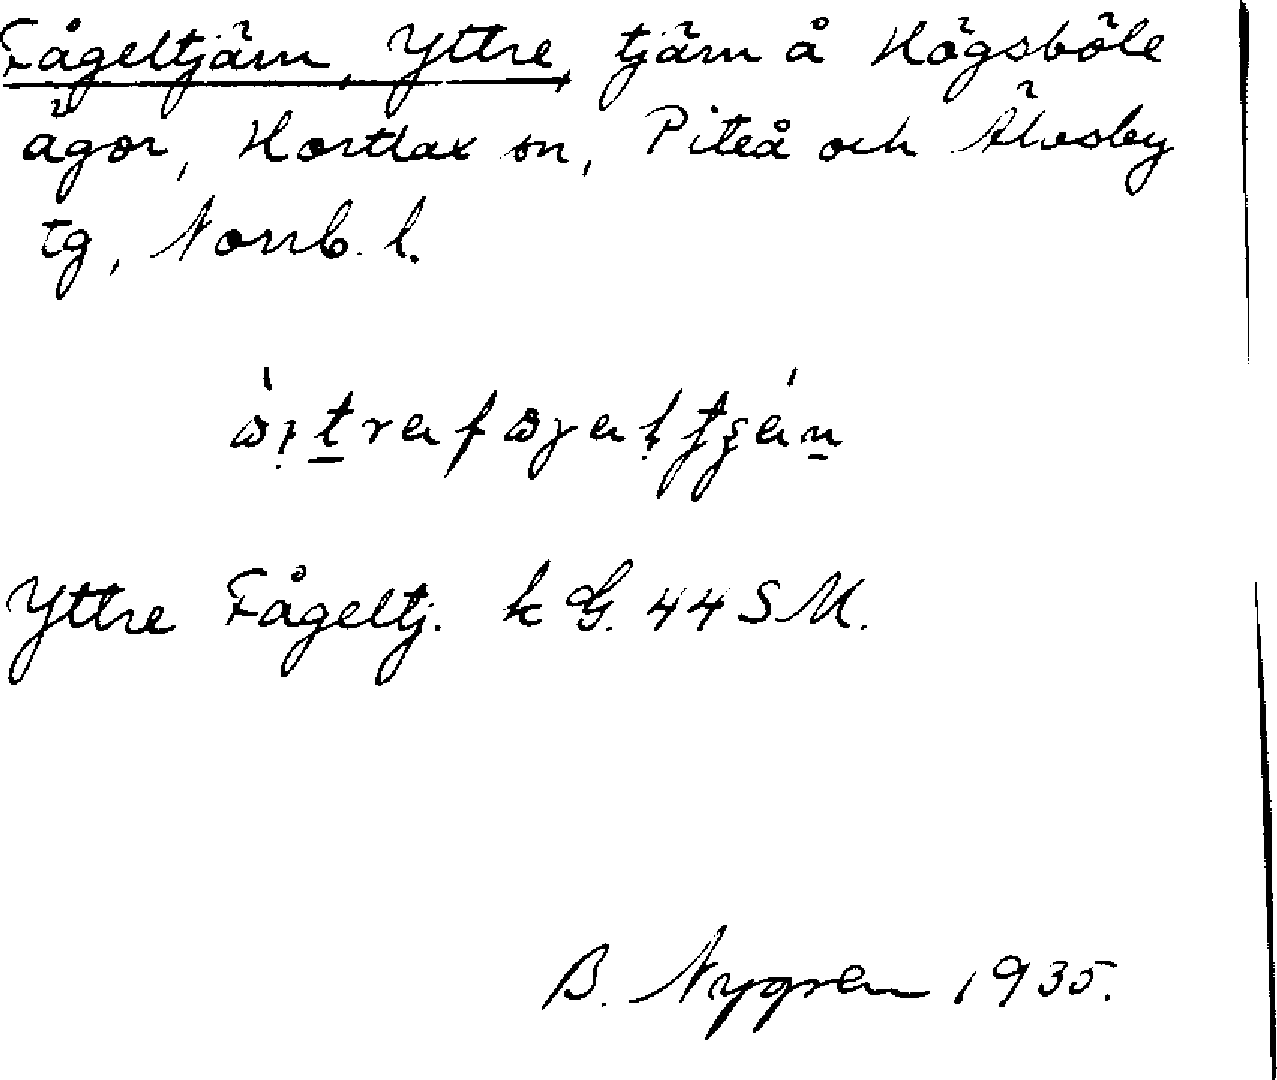 Fågeltjärn, Yttre, tjärn å Högsböle
ägor, Hortlax sn, Piteå och Älvsby
tg, Norrb. l.
Yttre Fågeltj. k G. 44 SM.
B. Nygren 1935.